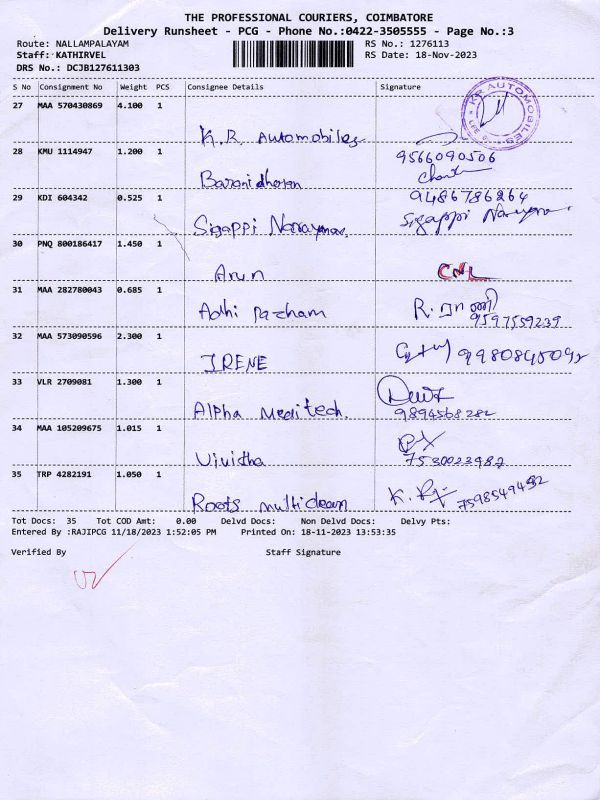 THE PROFESSIONAL COURIERS, COIMBATORE
Delivery Runsheet - PCG - Phone No.:0422-3505555 - Page No.:3
Route: NALLAMPALAYAM RS No.: 1276113
Staff: KATHIRVEL RS Date: 18-Nov-2023
DRS No.: DCJB127611303
S No Consignment No Weight PCS Consignee Details Signature
27 MAA 570430869 4.100 1
K.R. Automobiles
KR AUTOMOBILES
28 KMU 1114947 1.200 1 9566090506
Baranidharan
29 KDI 604342 0.525 1 9486786264
Sigappi Narayanan Sigappi Narayanan
30 PNQ 800186417 1.450 1
Arun
31 MAA 282780043 0.685 1 R. ராணி
Adhi Pazham 9597559239
32 MAA 573090596 2.300 1
IRENE 9980845092
33 VLR 2709081 1.300 1
Alpha Meditech. 9894568282
34 MAA 105209675 1.015 1
Vividha 7530023982
35 TRP 4282191 1.050 1
Roots multiclean 7598549482
Tot Docs: 35 Tot COD Amt: 0.00 Delvd Docs: Non Delvd Docs: Delvy Pts:
Entered By :RAJIPCG 11/18/2023 1:52:05 PM Printed On: 18-11-2023 13:53:35
Verified By Staff Signature